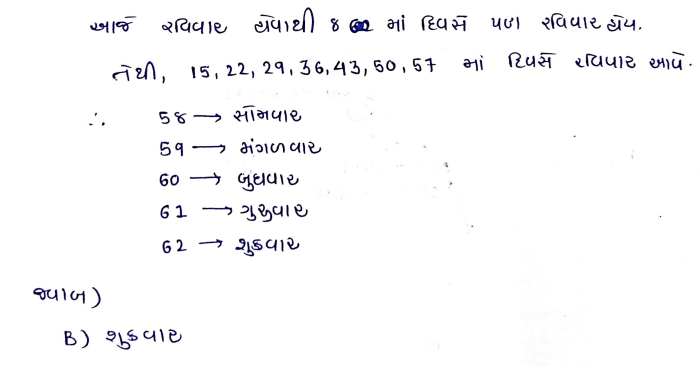 આજે રવિવાર હોવાથી 8 માં દિવસે પણ રવિવાર હોય.
તેથી, 15, 22, 29, 36, 43, 50, 57 માં દિવસે રવિવાર આવે.
∴ 58 → સોમવાર
59 → મંગળવાર
60 → બુધવાર
61 → ગુરુવાર
62 → શુક્રવાર
જવાબ)
B) શુક્રવાર